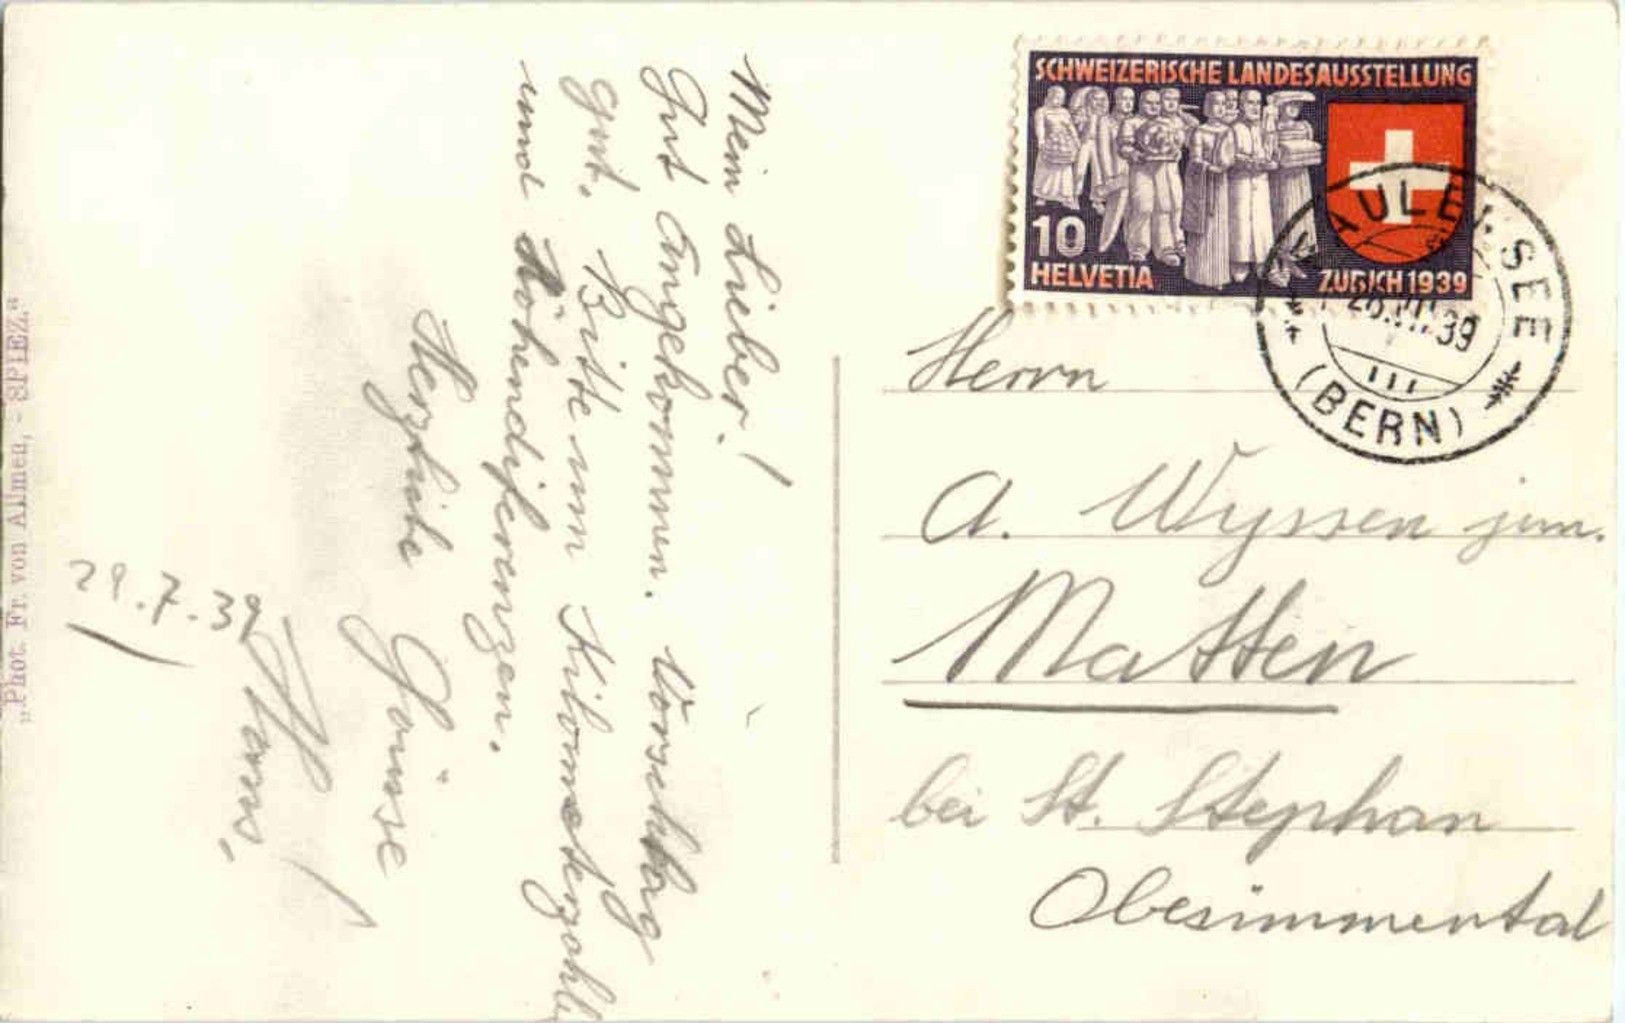 Mein Lieber!
Gut Angekommen. Vorschlag
gut. Bitte um Kilometerzahl
und Höhendiferenzen.
Herzliche Grüsse
Hans.
29.7.39
„Phot. Fr. von Allmen, - SPIEZ.“
SCHWEIZERISCHE LANDESAUSSTELLUNG
10
HELVETIA
ZÜRICH 1939
FAULENSEE
VII. 39
(BERN)
Herrn
A. Wyssen jun.
Matten
bei St. Stephan
Obersimmental